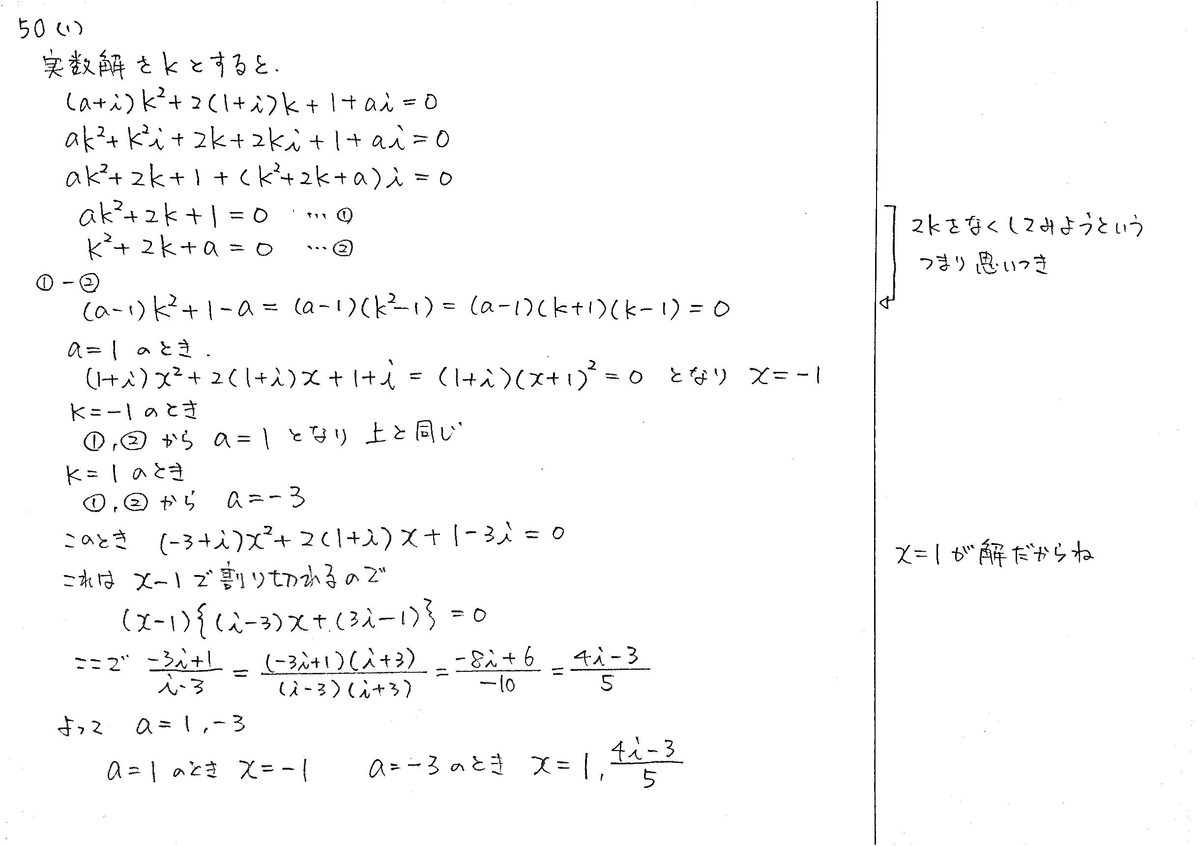 50 (1)
実数解をkとすると.
(a+i)k²+2(1+i)k+1+ai=0
ak²+k²i+2k+2ki+1+ai=0
ak²+2k+1+(k²+2k+a)i=0
ak²+2k+1=0 …①
k²+2k+a=0 …②
2kをなくしてみようという
つまり思いつき
①-②
(a-1)k²+1-a=(a-1)(k²-1)=(a-1)(k+1)(k-1)=0
a=1のとき.
(1+i)x²+2(1+i)x+1+i=(1+i)(x+1)²=0 となり x=-1
k=-1のとき
①,②から a=1 となり 上と同じ
k=1のとき
①,②から a=-3
このとき (-3+i)x²+2(1+i)x+1-3i=0
x=1が解だからね
これは x-1で割り切れるので
(x-1){(i-3)x+(3i-1)}=0
ここで (-3i+1)/(i-3) = (-3i+1)(i+3)/(i-3)(i+3) = (-8i+6)/(-10) = (4i-3)/5
よって a=1,-3
a=1のとき x=-1 a=-3のとき x=1, (4i-3)/5